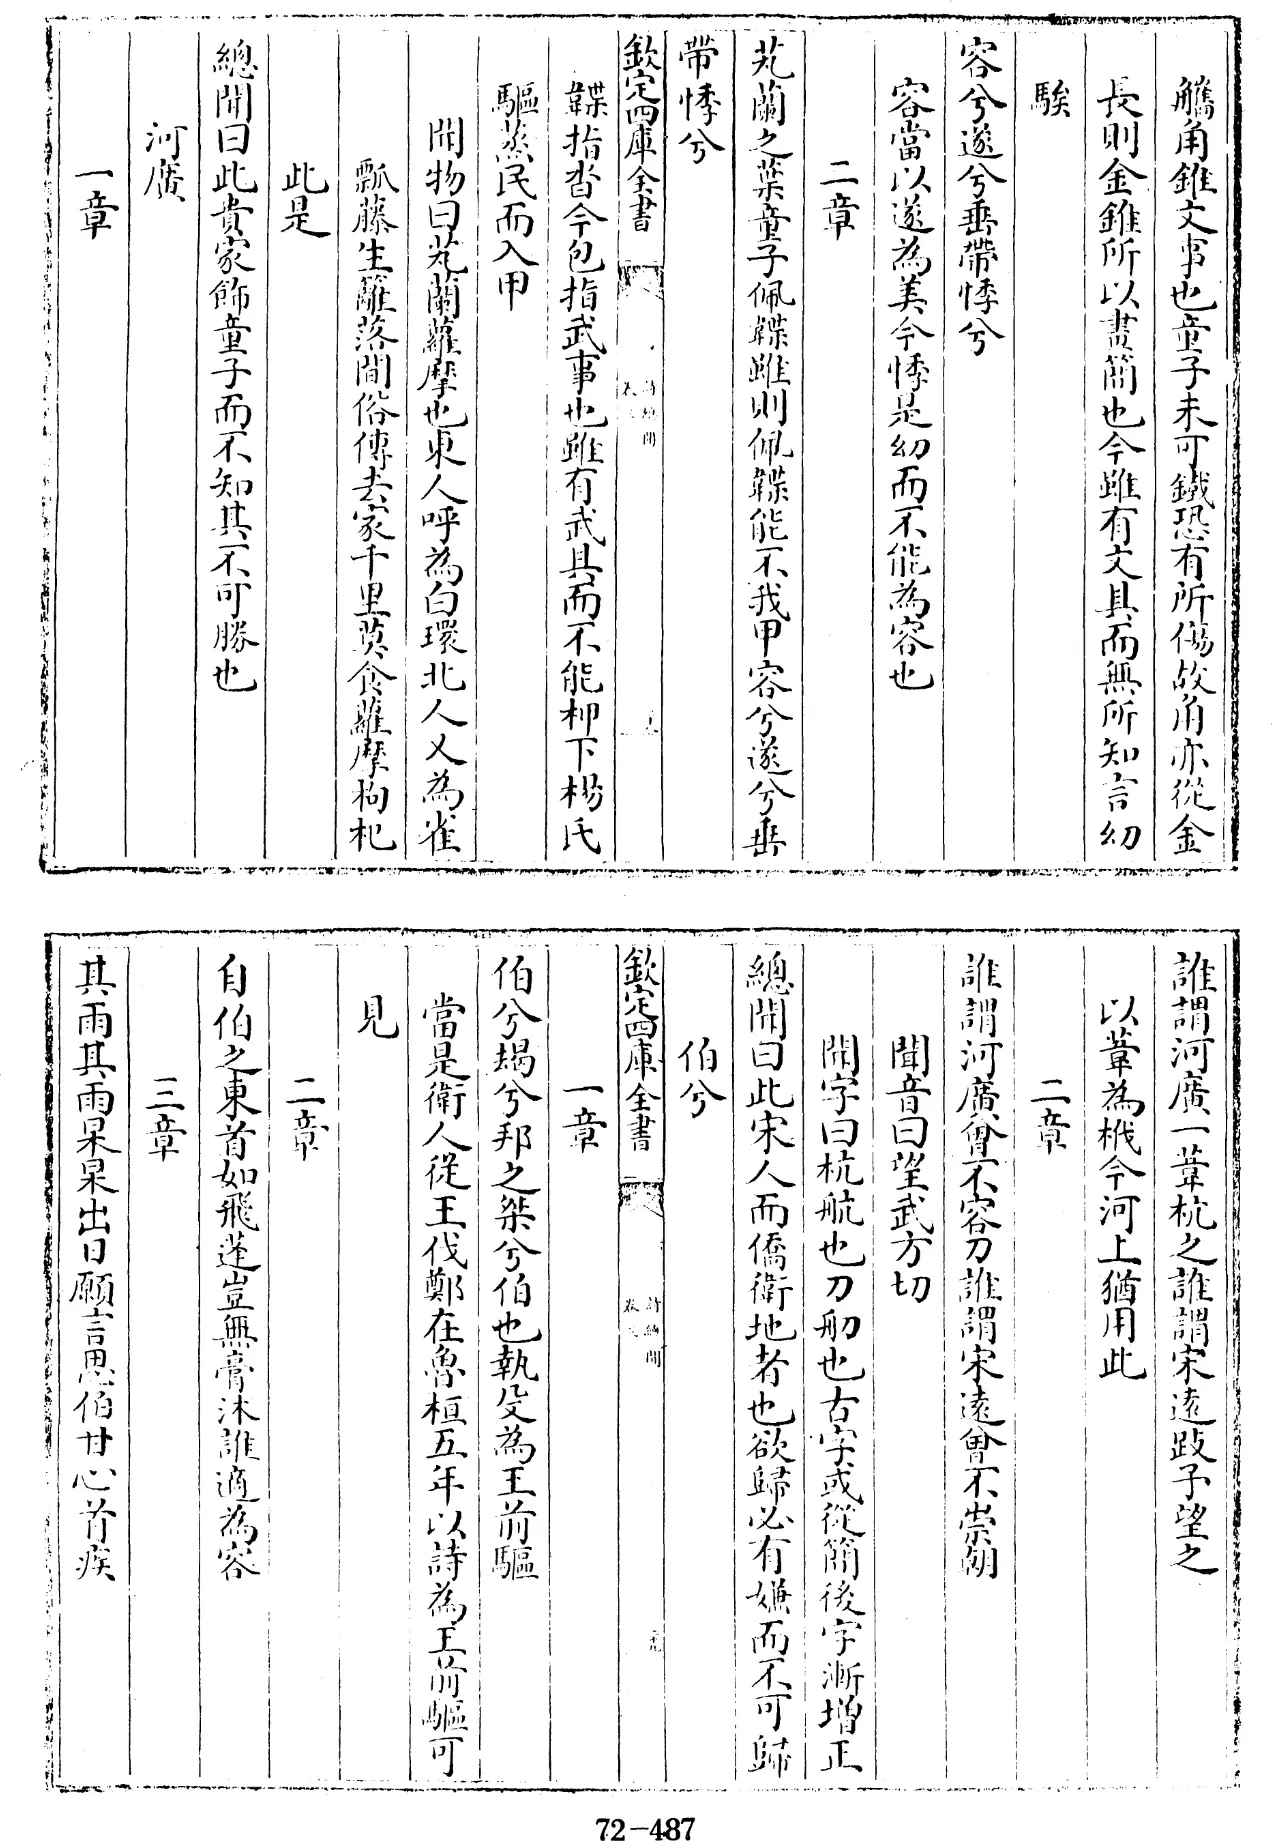 觿角錐文事也童子未可鐵恐有所傷故用亦從金
長則金錐所以畫簡也今雖有文具而無所知言幼
騃
容兮遂兮垂帶悸兮
容當以遂為美今悸是幼而不能為容也
二章
芄蘭之葉童子佩韘雖則佩韘能不我甲容兮遂兮垂
帶悸兮
欽定四庫全書
詩總聞
卷三
韘指沓今包指武事也雖有武具而不能柙下楊氏
驅蒸民而入甲
聞物曰芄蘭蘿摩也東人呼為白環北人又為雀
瓢藤生籬落間俗傳去家千里莫食蘿摩枸杞
此是
總聞曰此貴家飾童子而不知其不可勝也
河廣
一章
誰謂河廣一葦杭之誰謂宋遠跂予望之
以葦為栰今河上猶用此
二章
誰謂河廣曾不容刀誰謂宋遠曾不崇朝
聞音曰望武方切
聞字曰杭航也刀舠也古字或從簡後字漸增正
總聞曰此宋人而僑衛地者也欲歸必有嫌而不可歸
伯兮
欽定四庫全書
詩總聞
卷三
一章
伯兮朅兮邦之桀兮伯也執殳為王前驅
當是衛人從王伐鄭在魯桓五年以詩為王前驅可
見
二章
自伯之東首如飛蓬豈無膏沐誰適為容
三章
其雨其雨杲杲出日願言思伯甘心首疾
72-487